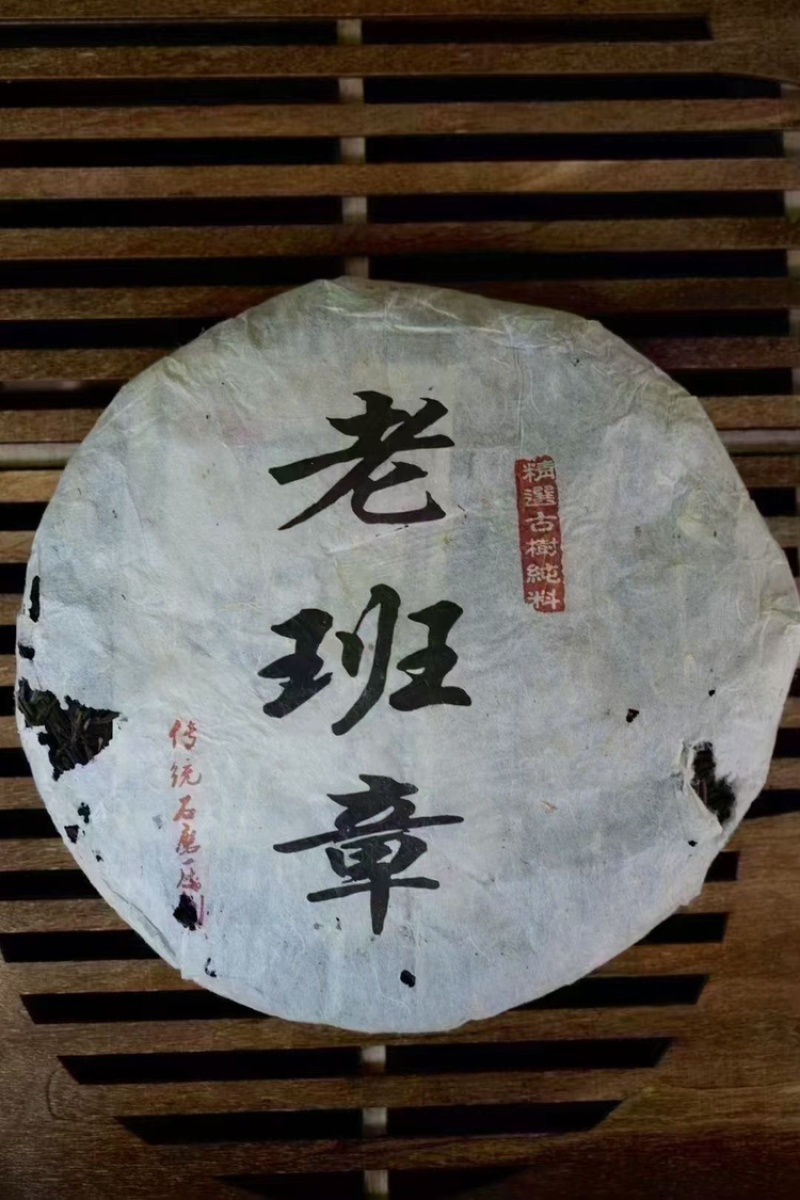 精選古樹純料
老班章
传统石磨压制